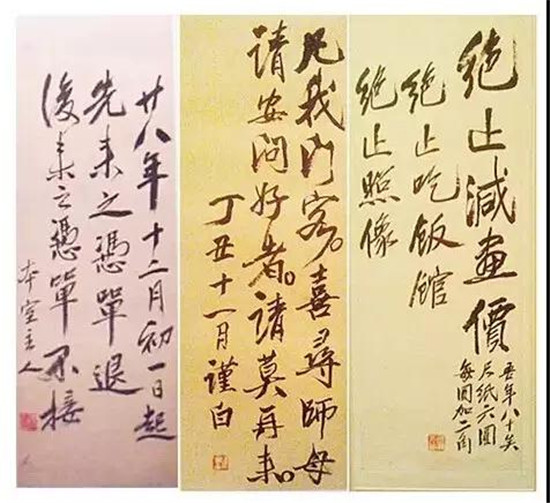 廿八年十二月初一日起
先來之憑單退
後來之憑單不接
本室主人
凡我門客。喜尋師母
請安問好者。請莫再來。
丁丑十一月謹白
絕止減畫價
絕止吃飯館
絕止照像
吾年八十矣
尺紙六圓
每圓加二角